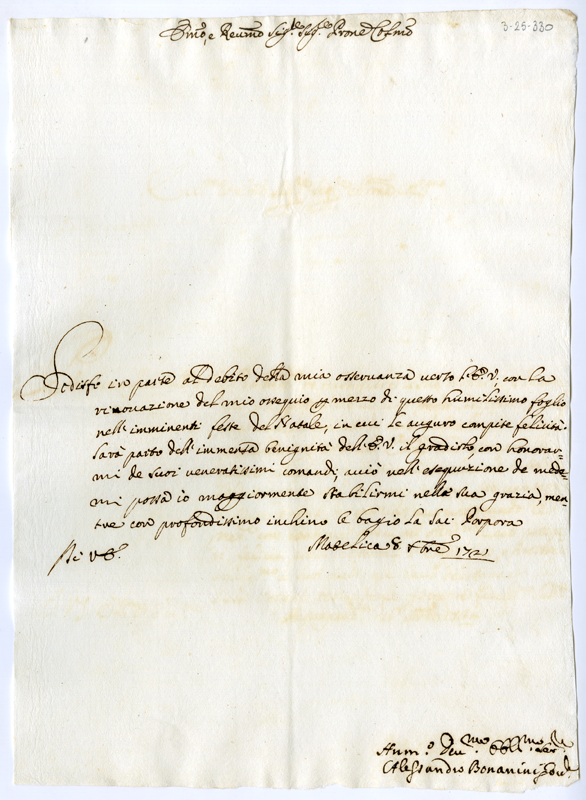 3-25-330
Emo, e Reumo Sig.re Sig.re Prone Colmo
Sodisfo in parte al debito della mia osseruanza uerso l'E.V. con la
rinouazione del mio ossequio p mezzo di questo humilissimo foglio
nell'imminenti feste del Natale, in cui le auguro compite felicità.
Sarà parto dell'immensa benignità dell'E.V. il gradirlo, con honorar-
mi de suoi ueneratissimi comandi, acciò nell'esequzione de mede-
mi possa io maggiormente stabilirmi nella sua grazia, men-
tre con profondissimo inchino le bagio la Sac: Porpora
Di V.E.
Matelica 8 Xbre 1721
Hum.o Deu.mo Obl.mo
Alessandro Bonanini